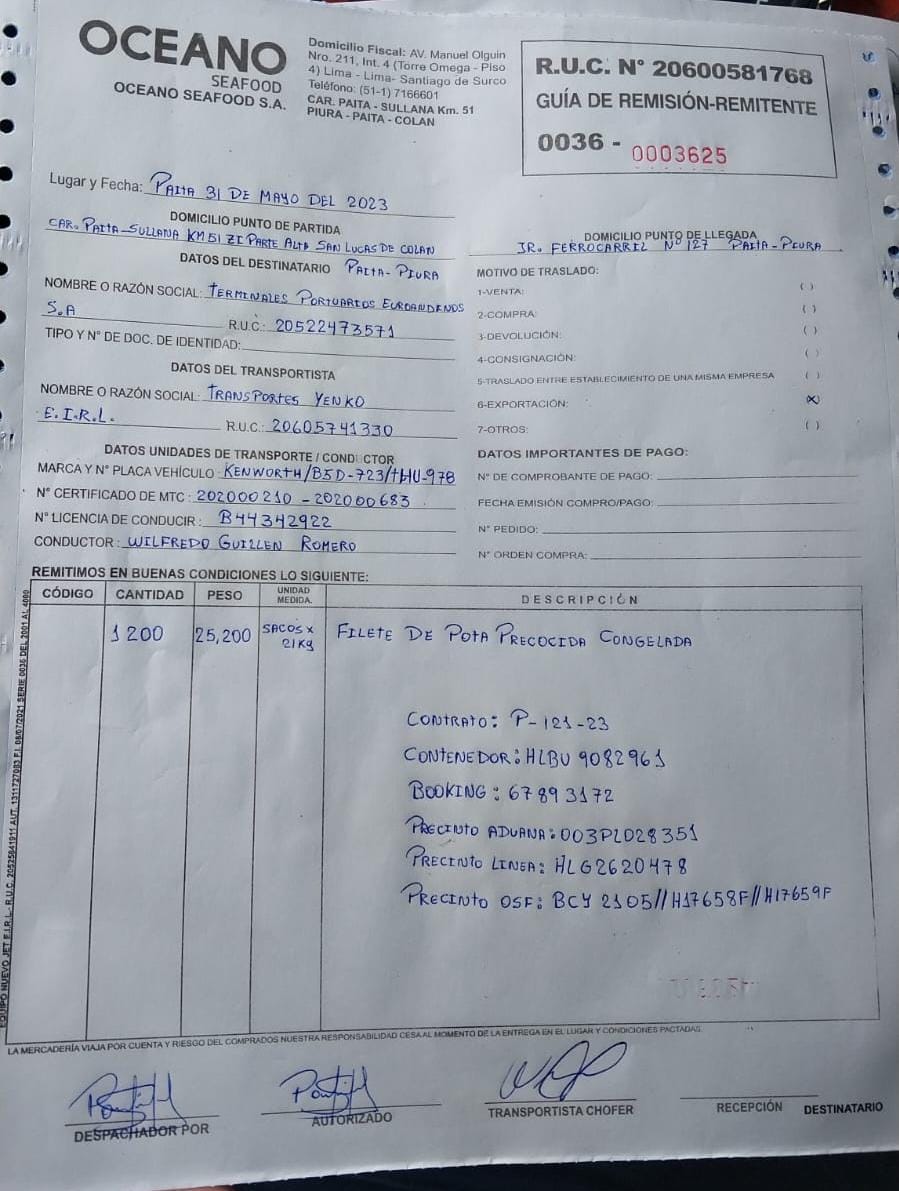 OCEANO
SEAFOOD
OCEANO SEAFOOD S.A.
Domicilio Fiscal: AV. Manuel Olguin
Nro. 211, Int. 4 (Torre Omega - Piso
4) Lima - Lima- Santiago de Surco
Teléfono: (51-1) 7166601
CAR. PAITA - SULLANA Km. 51
PIURA - PAITA - COLAN
R.U.C. N° 20600581768
GUÍA DE REMISIÓN-REMITENTE
0036 - 0003625
Lugar y Fecha: PAITA 31 DE MAYO DEL 2023
DOMICILIO PUNTO DE PARTIDA
CAR. PAITA-SULLANA KM 51 ZI PARTE ALTA SAN LUCAS DE COLAN
PAITA-PIURA
DOMICILIO PUNTO DE LLEGADA
JR. FERROCARRIL N° 127 PAITA-PIURA
DATOS DEL DESTINATARIO
NOMBRE O RAZÓN SOCIAL: TERMINALES PORTUARIOS EUROANDINOS
S.A
R.U.C.: 20522473571
TIPO Y N° DE DOC. DE IDENTIDAD:
DATOS DEL TRANSPORTISTA
NOMBRE O RAZÓN SOCIAL: TRANSPORTES YENKO
E.I.R.L.
R.U.C.: 20605741330
DATOS UNIDADES DE TRANSPORTE / CONDUCTOR
MARCA Y N° PLACA VEHÍCULO: KENWORTH/B5D-723/THU-978
N° CERTIFICADO DE MTC: 202000210-202000683
N° LICENCIA DE CONDUCIR: B44342922
CONDUCTOR: WILFREDO GUILLEN ROMERO
MOTIVO DE TRASLADO:
1-VENTA: ( )
2-COMPRA: ( )
3-DEVOLUCIÓN: ( )
4-CONSIGNACIÓN: ( )
5-TRASLADO ENTRE ESTABLECIMIENTO DE UNA MISMA EMPRESA ( )
6-EXPORTACIÓN: (X)
7-OTROS: ( )
DATOS IMPORTANTES DE PAGO:
N° DE COMPROBANTE DE PAGO:
FECHA EMISIÓN COMPRO/PAGO:
N° PEDIDO:
N° ORDEN COMPRA:
REMITIMOS EN BUENAS CONDICIONES LO SIGUIENTE:
CÓDIGO CANTIDAD PESO UNIDAD MEDIDA. DESCRIPCIÓN
1200 25,200 SACOS X 21Kg FILETE DE POTA PRECOCIDA CONGELADA
CONTRATO: P-121-23
CONTENEDOR: HLBU 9082961
BOOKING: 67893172
PRECINTO ADUANA: 003PL028351
PRECINTO LINEA: HLG2620478
PRECINTO OSF: BCY 2105//H17658F//H17659F
EQUIPO NUEVO JET E.I.R.L.- R.U.C. 20525841911 AUT. 1311727083 F.I. 08/07/2021 SERIE 0036 DEL 2001 AL 4000
LA MERCADERÍA VIAJA POR CUENTA Y RIESGO DEL COMPRADOS NUESTRA RESPONSABILIDAD CESA AL MOMENTO DE LA ENTREGA EN EL LUGAR Y CONDICIONES PACTADAS.
DESPACHADOR POR
AUTORIZADO
TRANSPORTISTA CHOFER
RECEPCIÓN DESTINATARIO